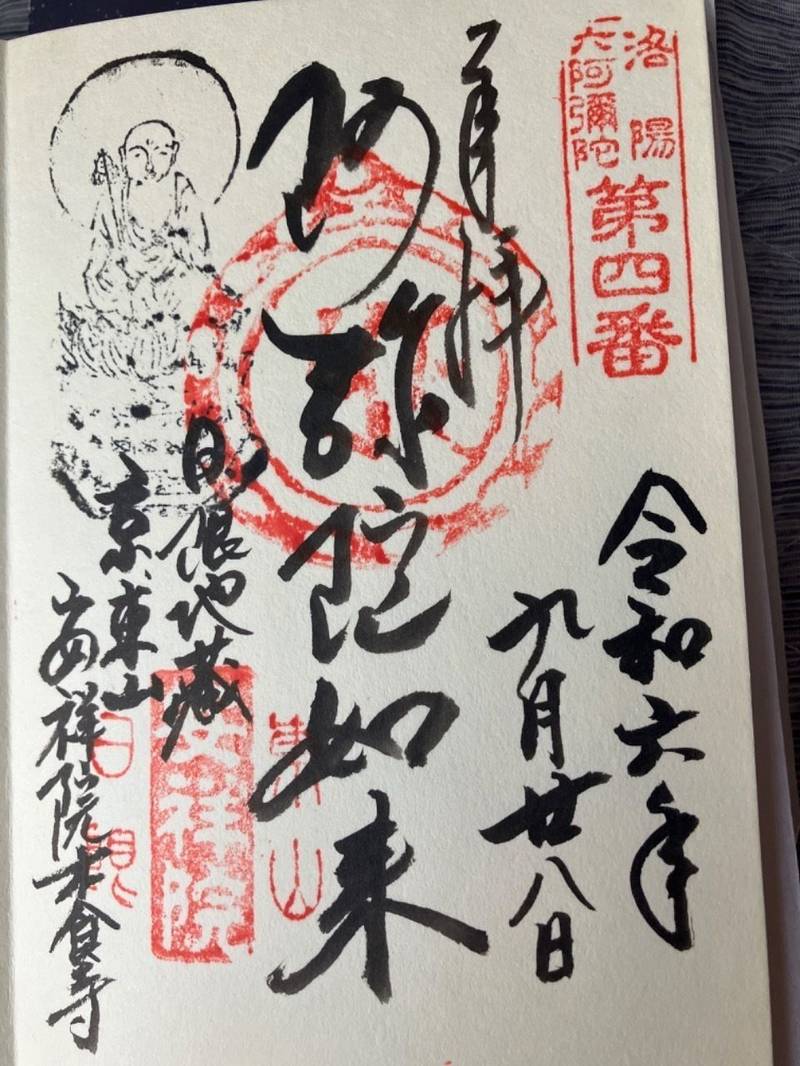 洛陽
六阿彌陀
第四番
令和六年
九月廿八日
奉拝
阿弥陀如来
東山
日限地蔵
安祥院
京東山
日限
安祥院木食寺